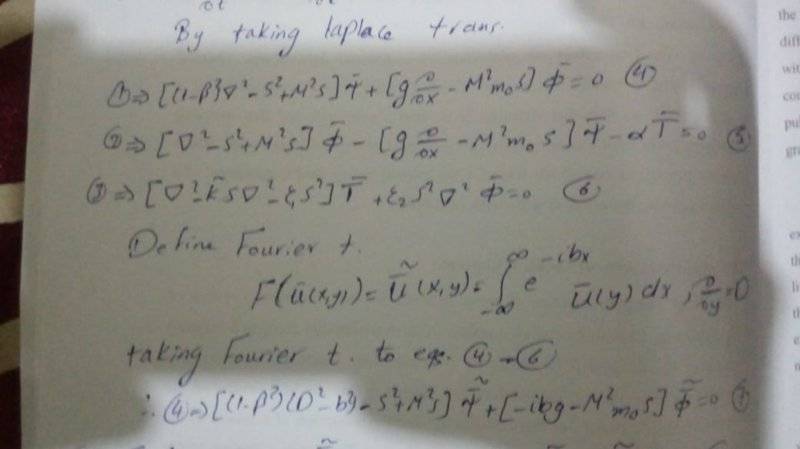 By taking laplace trans.
①⇒ [(1-β²)∇² - S² + M²S] Ψ̄ + [g ∂/∂x - M²m₀S] Φ̄ = 0 ④
②⇒ [∇² - S² + M²S] Φ̄ - [g ∂/∂x - M²m₀ S] Ψ̄ - α T̄ = 0 ⑤
③⇒ [∇² - K̄S∇² - ξ₁S²] T̄ + ξ₂S²∇² Φ̄ = 0 ⑥
Define Fourier t.
F(ū(x,y)) = ũ̄ (x,y) = ∫_{-∞}^{∞} e^{-ibx} ū(y) dx, ∂/∂y = D
taking Fourier t. to eqs. ④ - ⑥
∴ ④⇒ [(1-β²)(D² - b²) - S² + M²S] Ψ̄̃ + [-ibg - M²m₀S] Φ̄̃ = 0 ⑦
the